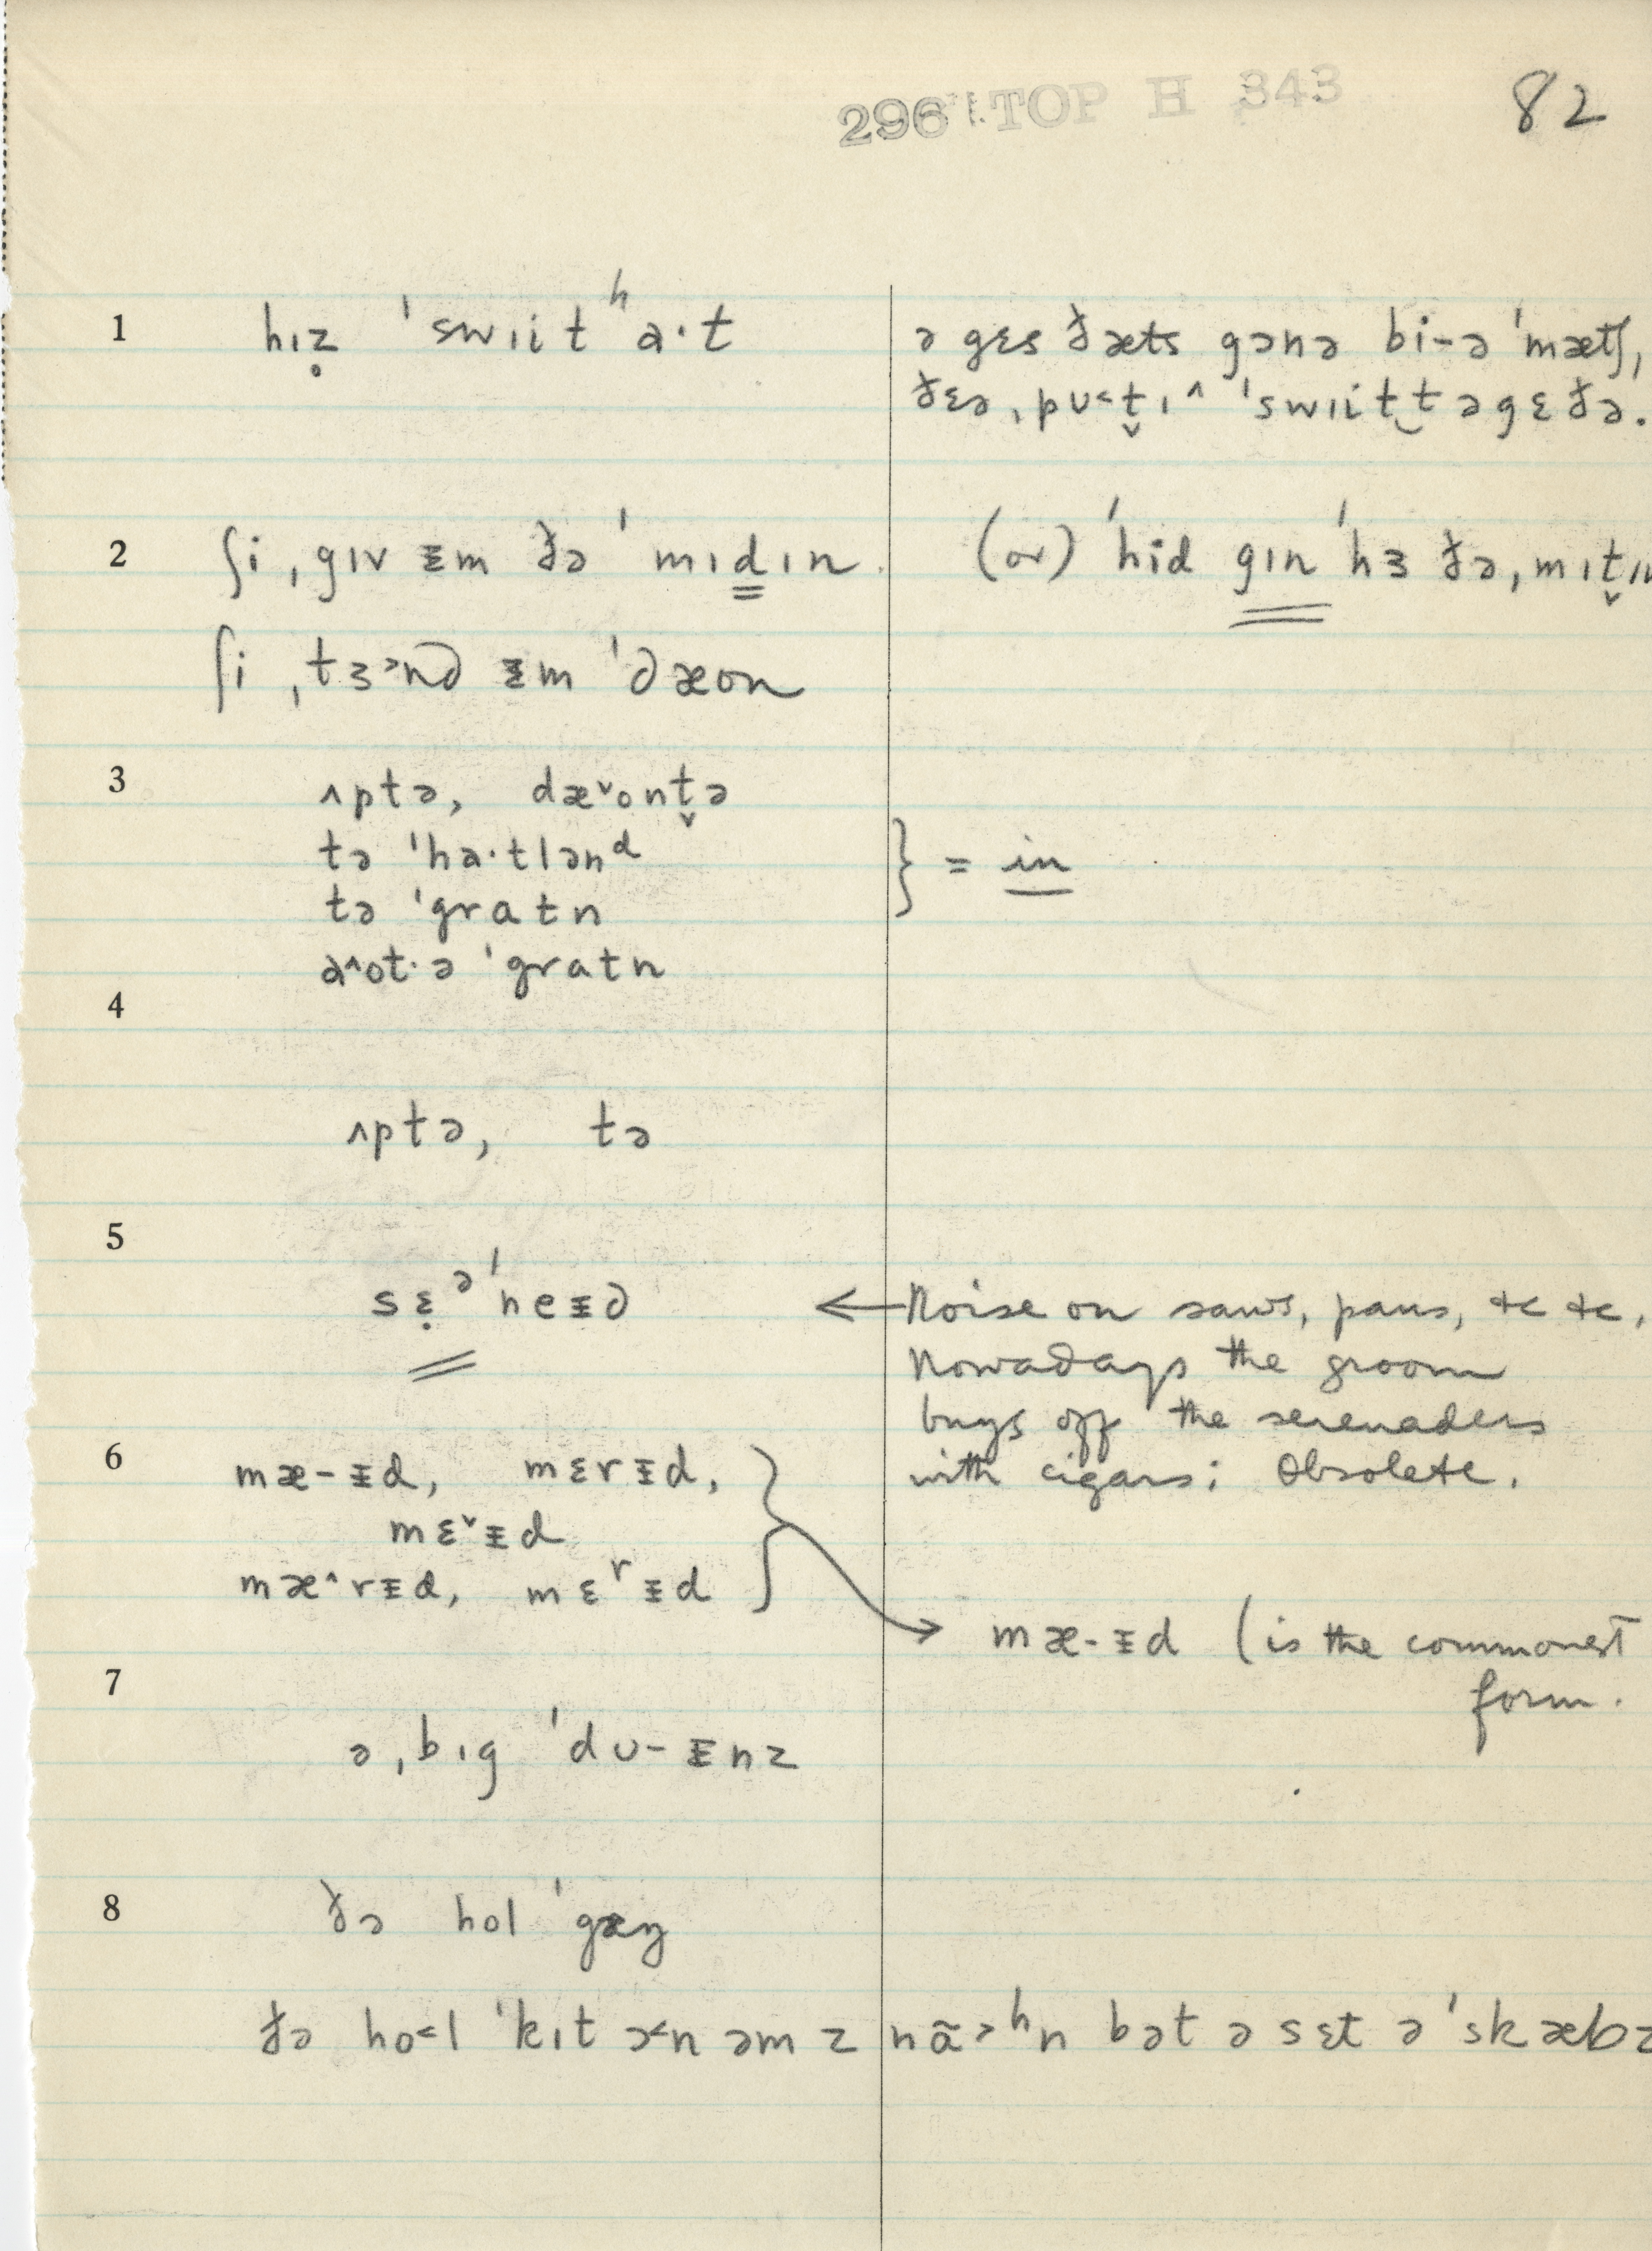 296 TOP H 343
82
1 hɪẓ ˈswɪitʰa·t
ə gɛs ðæts gənə bi-ə ˈmætʃ,
ðɛə ˌpʊ˂t̬ɪ^ ˈswɪit‿təgɛðə.
2 ʃi ˌgɪv ᵻm ðə ˈmɪdɪn.
(or) ˈhid gɪn ˈhɜ ðə ˌmɪt̬ɪn
ʃi ˌtɜ>nd ᵻm ˈdæon
3 ʌptə, dæ˅ont̬ə
tə ˈha·tlənᵈ
} = in
tə ˈgratn
a^ot·ə ˈgratn
4
ʌptə, tə
5
sɛ̣ᵊˈneᵻd
← Noise on saws, pans, &c &c,
Nowadays the groom
buys off the serenaders
with cigars; Obsolete.
6 mæ-ᵻd, mɛrᵻd,
mɛ˅ᵻd
mæ^rᵻd, mɛʳᵻd
mæ-ᵻd (is the commonest
form.
7
ə ˌbɪg ˈdʊ-ᵻnz
8 ðə hol ˈgæŋ
ðə ho˂l ˈkɪt ɔ˂n əm z nã>ʰn bət ə sɛt ə ˈskæbz